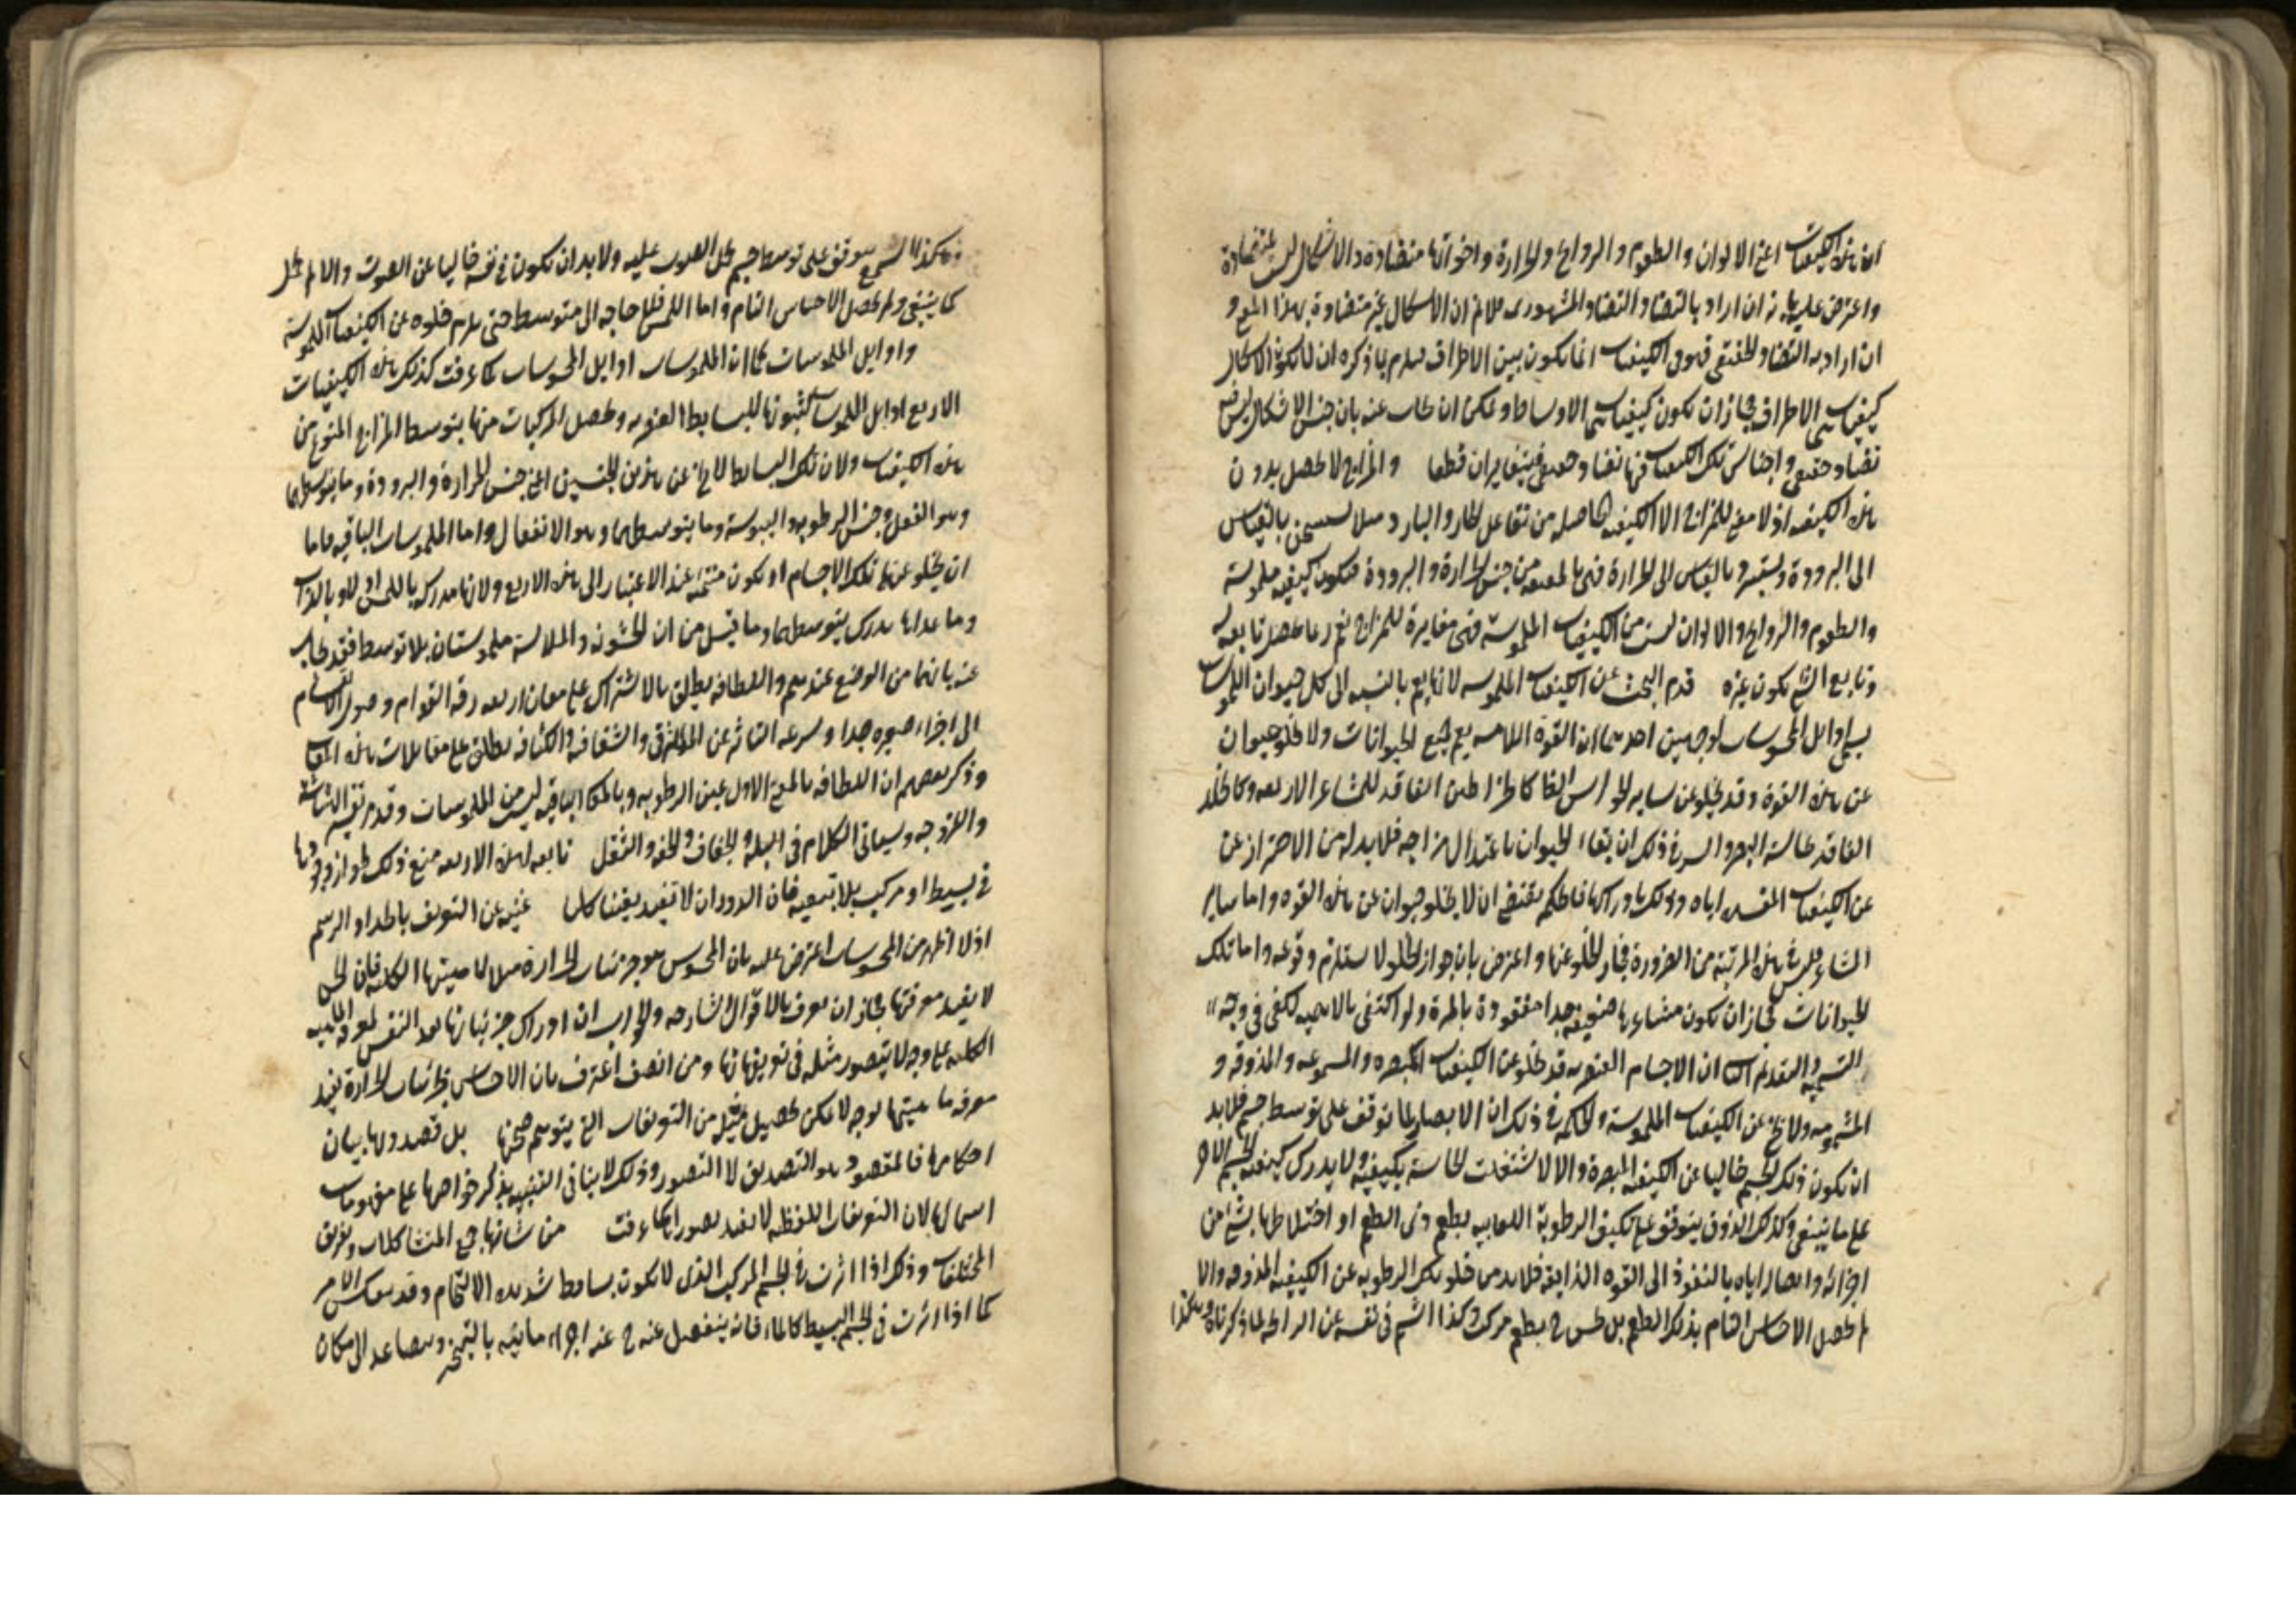 ان هذه الكيفيات اعني الالوان والطعوم والروايح والحرارة واخواتها متضادة والاشكال ليست بمتضادة
واعترض عليه بانه ان اراد بالتضاد التضاد المشهوري فلا نم ان الاشكال غير متضادة بهذا المعنى و
ان اراد به التضاد الحقيقي فهو في الكيفيات انما يكون بين الاطراف فيلزم مما ذكره ان لا يكون الاشكال
كيفيات هي الاطراف فجاز ان يكون كيفيات هي الاوساط ويمكن ان يجاب عنه بان جنس الاشكال ليس فيه
تضاد حقيقي واجناس تلك الكيفيات فيها تضاد حقيقي فيتغايران قطعا والمزاج لا يحصل بدون
هذه الكيفية اذ لا معنى للمزاج الا الكيفية الحاصلة من تفاعل الحار والبارد مثلا يستسخن بالقياس
الى البرودة ويستبرد بالقياس الى الحرارة فهي بالحقيقة من جنس الحرارة والبرودة فيكون كيفية ملموسة
والطعوم والروايح والالوان ليست من الكيفيات الملموسة فهي مغايرة للمزاج نعم ربما يحصل تابعة له
وتابع الشئ يكون غيره قدم البحث عن الكيفيات الملموسة لانها يعم بالنسبة الى كل حيوان الملموسات
يسمى اوايل المحسوسات لوجهين احدهما ان القوة اللامسة يعم جميع الحيوانات ولا يخلو حيوان
عن هذه القوة وقد يخلو عن ساير الحواس الظاهرة كالخراطين الفاقد للمشاعر الاربعة وكالخلد
الفاقد لحاسة البصر والسر في ذلك ان بقاء الحيوان باعتدال مزاجه فلا بد له من الاحتراز عن
عن الكيفيات المفسدة اياه وذلك بادراكها فالحكمة يقتضي ان لا يخلو حيوان عن هذه القوة واما ساير
المشاعر فليس في هذه المرتبة من الضرورة فجاز الخلو عنها واعترض بان جواز الخلو لا يستلزم وقوعه واما تلك
الحيوانات فجاز ان يكون مشاعرها ضعيفة جدا لا مفقودة بالمرة ولو اكتفى بالاهمية لكفى في وجه
التسمية والتقديم الثاني ان الاجسام العنصرية قد يخلو عن الكيفيات المبصرة والمسموعة والمذوقة و
المشمومة ولا يخلو عن الكيفيات الملموسة والحكمة في ذلك ان الابصار لما توقف على توسط جسم فلا بد
ان يكون ذلك الجسم خاليا عن الكيفية المبصرة والا لاشتغلت الحاسة بكيفيته ولا يدرك كيفية الجسم الاخر
على ما ينبغي وكذلك الذوق يتوقف على تكيف الرطوبة اللعابية بطعم ذي الطعم او اختلاطها بشئ من
اجزائه وايصالها اياه بالنفوذ الى القوة الذايقة فلا بد من خلو تلك الرطوبة عن الكيفية المذوقة والا
لم يحصل الاحساس التام بذلك الطعم بل يحس ح بطعم مركب وكذا الشم في نفسه عن الرائحة لما ذكرناه وهكذا
وهكذا السمع يتوقف على توسط جسم يحمل الصوت عليه ولا بد ان يكون في نفسه خاليا عن الصوت والا لم يحمل
كما ينبغي ولم يحصل الاحساس التام واما اللمس فلا حاجة الى متوسط حتى يلزم خلوه عن الكيفيات الملموسة
واوايل الملموسات كما ان الملموسات اوايل المحسوسات كما عرفت كذلك هذه الكيفيات
الاربع اوايل الملموسات لثبوتها للبسايط العنصرية وتحصل المركبات منها بتوسط المزاج المتنوع من
هذه الكيفيات ولان تلك البسايط لا يخلو عن هذين الجنسين اعني جنس الحرارة والبرودة وما يتوسطهما
وهو الفعل وجنس الرطوبة واليبوسة وما يتوسطهما وهو الانفعال واما الملموسات الباقية فاما
ان يخلو عنها تلك الاجسام او يكون منتمية عند الاعتبار الى هذه الاربع ولانها مدركة باللمس اولا وبالذات
وما عداها يدرك بتوسطها وما قيل من ان الخشونة والملاسة ملموستان بلا توسط فقد يجاب
عنه بانهما من الوضع عندهم واللطافة يطلق بالاشتراك على معان اربعة رقة القوام وقبول الانقسام
الى اجزاء صغيرة جدا وسرعة التاثر عن الملاقي والشفافة والكثافة يطلق على مقابلات هذه المعاني
وذكر بعضهم ان اللطافة بالمعنى الاول عين الرطوبة وبالمعاني الباقية ليس من الملموسات وقدم تفسير الهشاشة
واللزوجة وسياتي الكلام في البلة والجفاف والخفة والثقل تابعة لهذه الاربعة منع ذلك لجواز وجودها
في بسيط او مركب بلا تبعية فان الدوران لا تفيد يقينا كليا غنية عن التعريف بالحد او الرسم
اذ لا اظهر من المحسوسات اعترض عليه بان المحسوس هو جزئيات الحرارة مثلا لا ماهيتها الكلية فان الحس
لا يفيد معرفتها فجاز ان يعرف بالاقوال الشارحة ولا ريب ان ادراك جزئياتها يعد النفس لمعرفة الماهية
الكلية على وجه لا يتصور مثله في تعريفاتها ومن انصف اعترف بان الاحساس بجزئيات الحرارة يفيد
معرفة ماهيتها بوجه لا يمكن تحصيل مثله من التعريفات التي يتوهم صحتها بل قصدوا لها بيان
احكامها فالمقصود هو التصديق لا التصور وذلك لا ينافي التنبيه بذكر خواصها على مفهومات
اسمائها لان التعريفات اللفظية لا يفيد تصورا كما عرفت من شانها جمع المتشاكلات وتفريق
المختلفات وذلك اذا اثرت في الجسم المركب الذي لا يكون بسايطه شديدة الالتحام وقد ينعكس الامر
كما اذا اثرت في الجسم البسيط كالماء فانه ينفصل عنه ح عنه اجزاء مائية بالتبخر ويتصاعد الى مكان